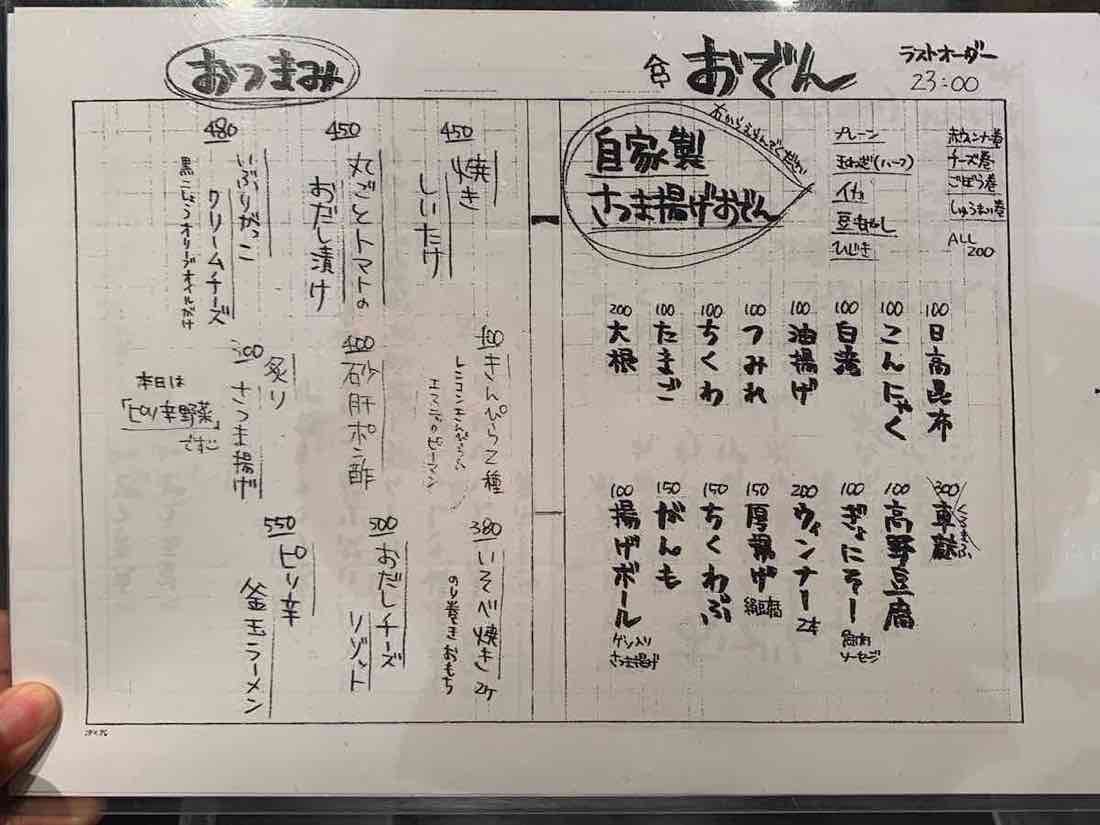 おでん
ラストオーダー
23:00
自家製
さつま揚げおでん
右からえらんでください
プレーン
玉ねぎ(ハーフ)
イカ
豆もやし
ひじき
ウインナー巻
チーズ巻
ごぼう巻
しゅうまい巻
ALL
200
100 日高昆布
100 こんにゃく
100 白滝
100 油揚げ
100 つみれ
100 ちくわ
100 たまご
200 大根
300 車麩
くるまふ
100 高野豆腐
100 ぎょにそー
魚肉
ソーセージ
200 ウィンナー 2本
150 厚揚げ
絹豆腐
150 ちくわぶ
150 がんも
100 揚げボール
ゲソ入り
さつま揚げ
おつまみ
450
焼き
しいたけ
450
丸ごとトマトの
おだし漬け
480
いぶりがっこ
クリームチーズ
黒こしょうオリーブオイルがけ
400 きんぴら2種
レンコンきんぴら
エスニックピーマン
400 砂肝ポン酢
炙り
さつま揚げ
本日は
「ピリ辛野菜」
です
380 いそべ焼き 2ケ
のり巻きおもち
500
おだしチーズ
リゾット
550
ピリ辛
釜玉ラーメン